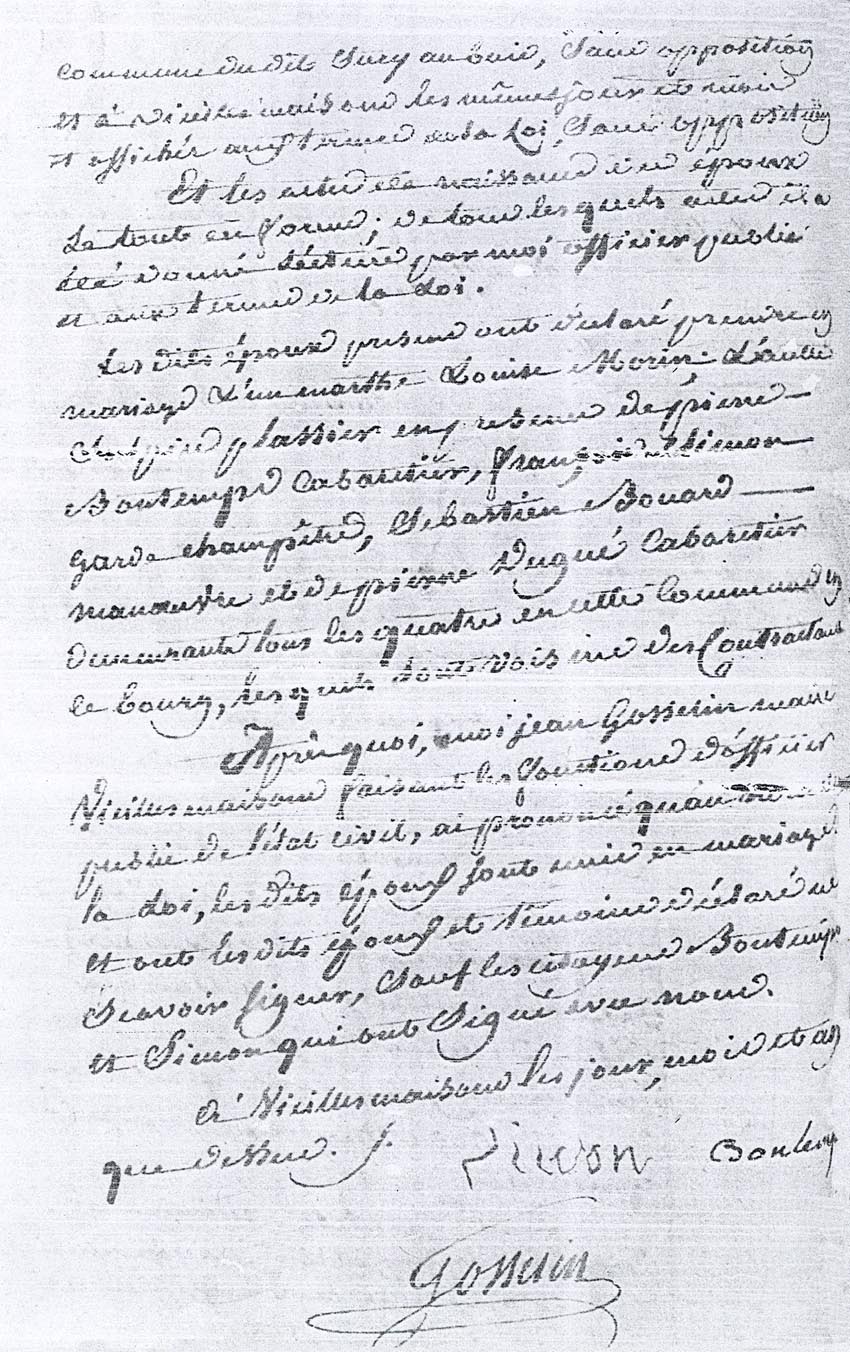 commune du dit Sury aubois, Sans opposition
et à vieilles maisons les mêmes jour et mois
et affichés aux termes de la Loi, Sans opposition
Et les actes de naissance des époux
Le tout en forme; de tous lesquels actes il a
été donné Lecture par moi officier public
et aux termes de la Loi.
Les dits époux présens ont déclaré prendre en
mariage L'un marthe Louise Morin; L'autre
plassier en presence de pierre
Bontemps Cabaretier, françois Simon
garde champêtre, Sebastien Bouard
manoeuvre et de pierre Dugué Cabaretier
demeurants tous les quatre en cette Commune en
le bourg, lesquels sont voisins des Contractans
Après quoi, moi jean Gosselin maire
Vieilles maisons faisant les fonctions d'officier
public de l'état civil, ai prononcé qu'au
la Loi, les dits époux sont unis en mariage
et ont les dits époux et témoins déclaré ne
Scavoir signer, Sauf les citoyens Bontemps
et Simon qui ont Signé avec nous.
à Vieilles maisons les jour, mois et an
que dessus.
Simon Bontemps
Gosselin